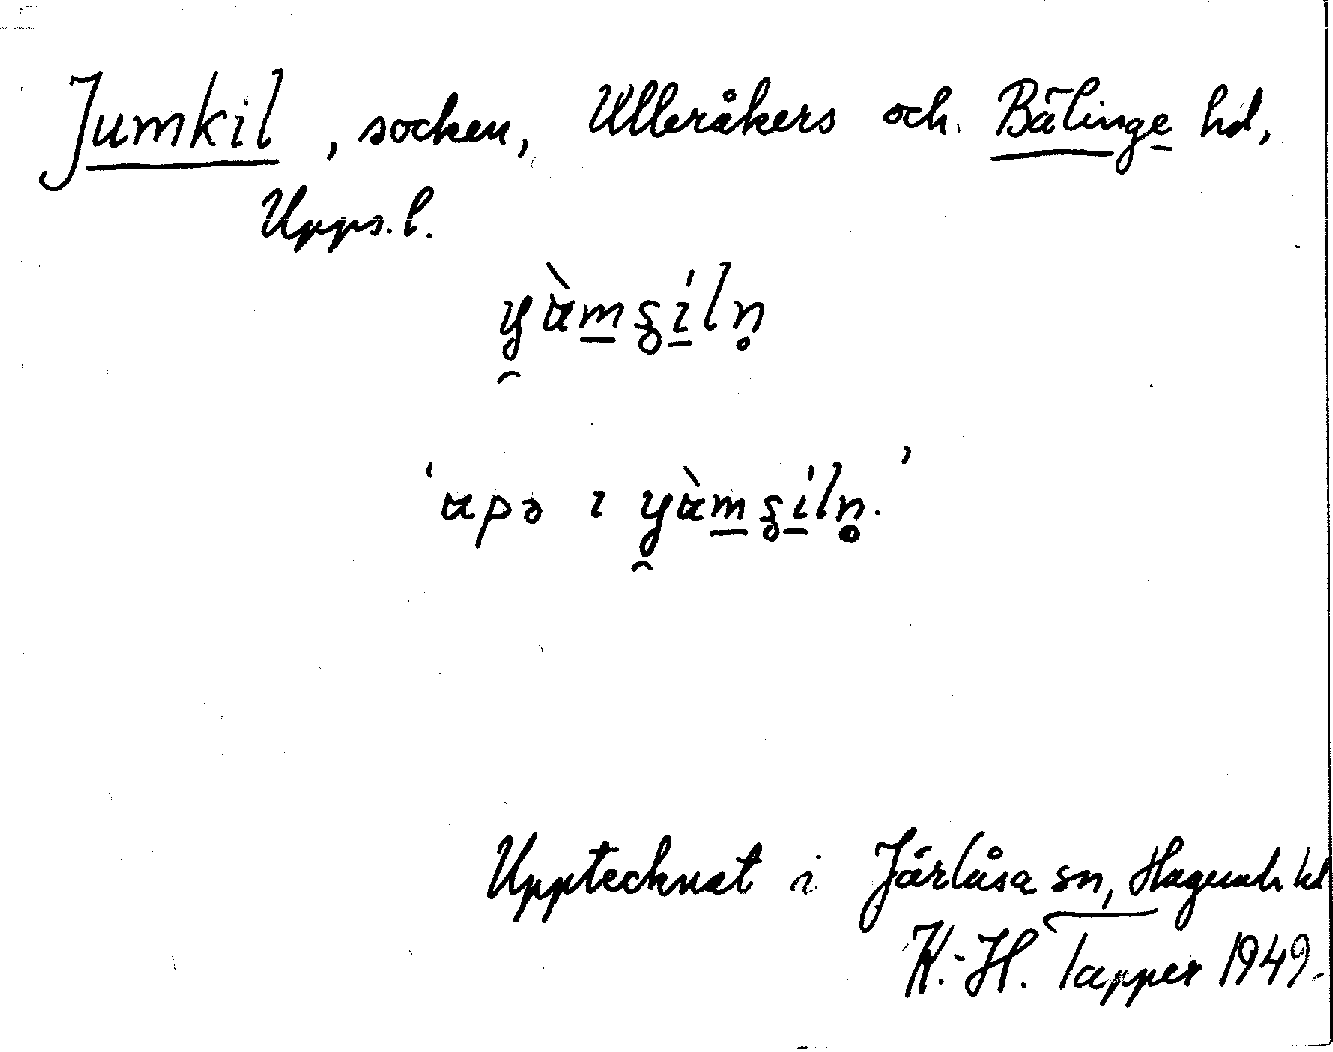 Jumkil, socken, Ulleråkers och Bälinge hd,
Upps. l.
Upptecknat i Järlåsa sn, Hagunda hd
K.-H. Tapper 1949.